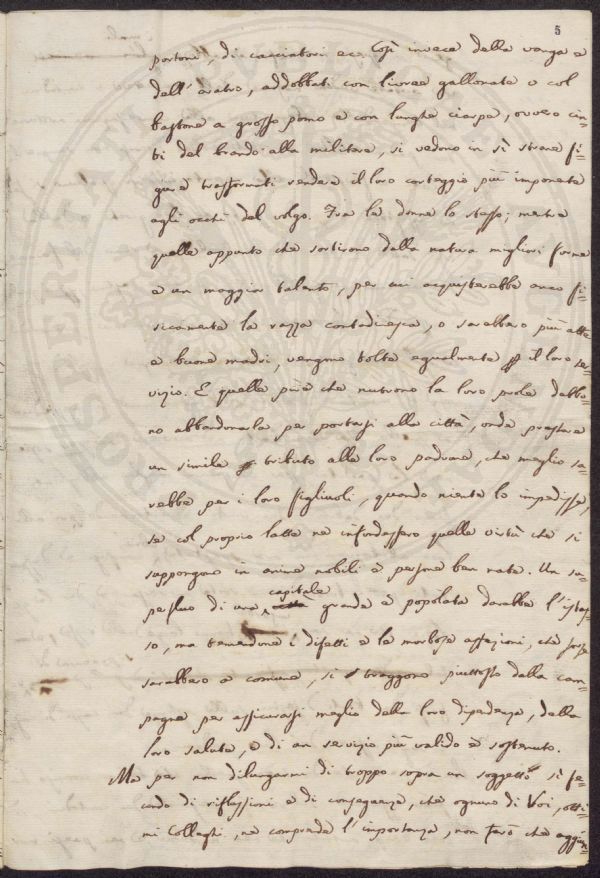 5
portoni, di cacciatori ecc. Così invece della vanga e
dell'aratro, addobbati con livree gallonate o col
bastone a grosso pomo e con lunghe ciarpe, ovvero cin=
ti del brando alla militare, si vedono in sì strane fi=
gure trasformati rendere il loro corteggio più imponente
agli occhi del volgo. Fra le donne lo stesso; mentre
quelle appunto che sortirono dalla natura migliori forme
e un maggior talento, per cui acquisterebbe anco fi=
sicamente la razza contadinesca, o sarebbero più atte
e buone madri, vengono tolte egualmente il loro ser=
vizio. E quelle pure che nutrono la loro prole debbo=
no abbandonarla per portarsi alla città, onde prestare
un simile tributo alle loro padrone, che meglio sa=
rebbe per i loro figliuoli, quando niente lo impedisse,
se col proprio latte ne infondessero quelle virtù che si
suppongono in anime nobili e persone ben nate. Un su=
perfluo di una capitale grande e popolata darebbe l'istes=
so, ma temendone i difetti e le morbose affezioni, che forse
sarebbero a comune, si traggono piuttosto dalla cam=
pagna per assicurarsi meglio della loro dipendenza, della
loro salute, e di un servizio più valido e sostenuto.
Ma per non dilungarmi di troppo sopra un soggetto sì fe=
condo di riflessioni e di conseguenze, che ognuno di Voi, otti=
mi Colleghi, ne comprende l'importanza, non farò che aggiun=